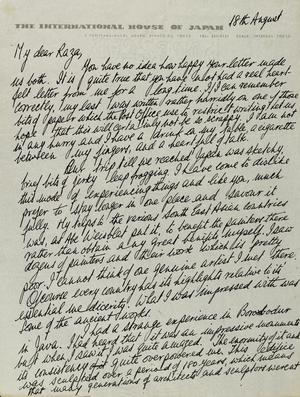 THE INTERNATIONAL HOUSE OF JAPAN
18th August
My dear Raza,
You have no idea how happy your letter made
us both. It is quite true that you have not had a real heart-
felt letter from me for a long time. If I can remember
correctly, my last was written rather hurriedly on one of those
bits of paper which the Post Office use to restrict writing. Let us
hope that this will certainly not be so scrappy. I am not
in any hurry and I have a drink on my table, a cigarette
between my fingers, and a heart full of talk.
Our trip till we reached Japan was sketchy,
brief bits of jerky leap frogging. I have come to dislike
this mode of experiencing things and like you, much
prefer to stay longer in one place and savour it
fully. My trips to the various South East Asian countries
was, as Abe Weisblat put it, to benefit the painters there
rather than obtain any great benefits myself. I saw
dozens of painters and their work which is pretty
poor. I cannot think of one genuine artist I met there.
Of course every country has its highlights relative to its
essential mediocrity. What I was impressed with was
some of the ancient works.
I had a strange experience in Borobodur
in Java. I had heard that it was an impressive monument
but when I saw it I was quite amazed. The enormity of it and
its consistency quite overpowered me. This edifice
was sculptured over a period of 100 years which means
that many generations of architects and sculptors went at